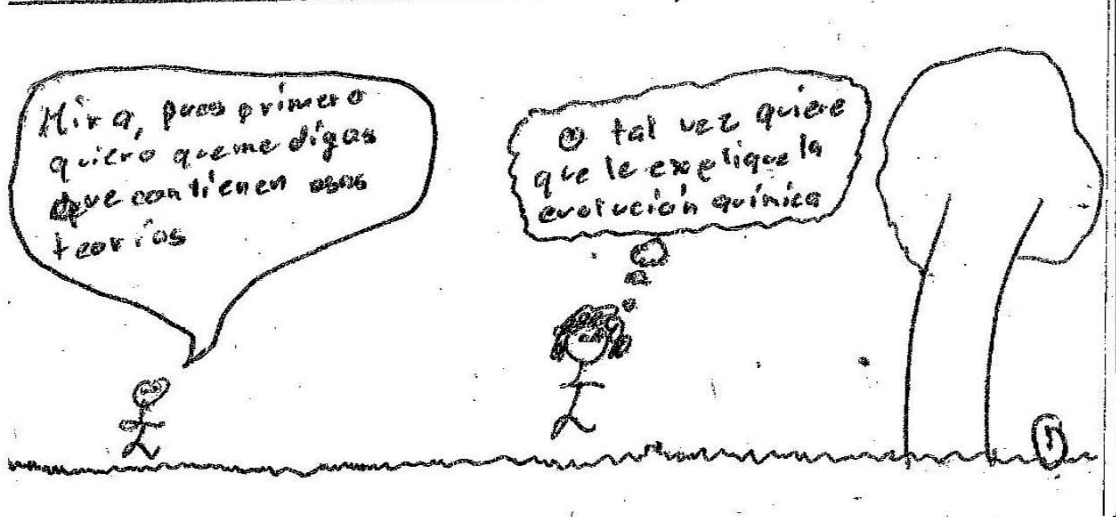 Mira, pues primero
quiero que me digas
que contienen esas
teorías
O tal vez quiere
que le explique la
evolución química
1